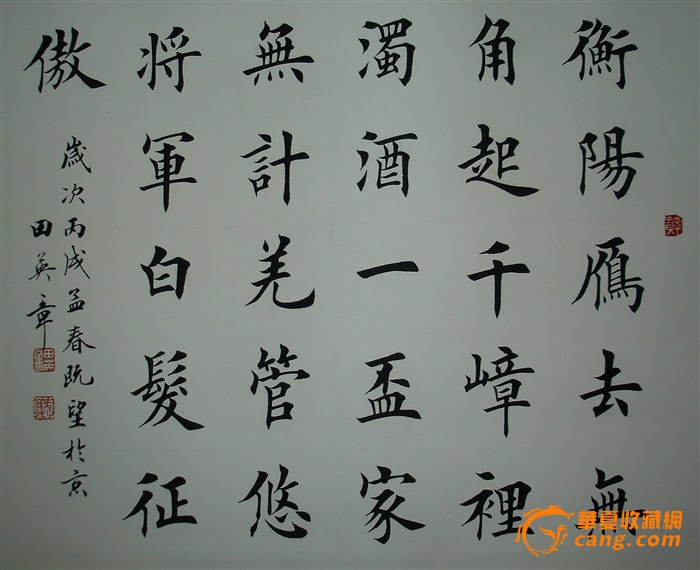 衡陽鴈去無
角起千嶂裡
濁酒一盃家
無計羌管悠
将軍白髮征
傲
歲次丙戌孟春既望於京
田英章
華夏收藏網
cang.com